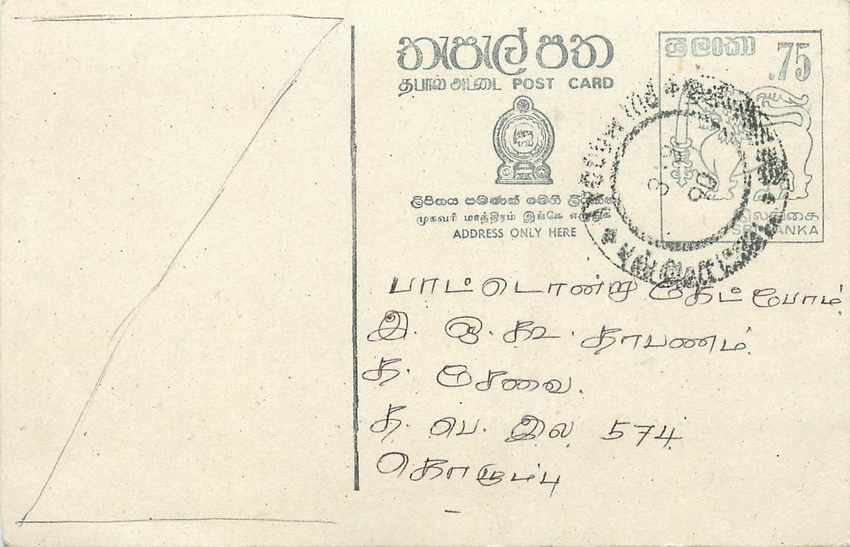 තැපැල් පත
தபால் அட்டை POST CARD
ලිපිනය පමණක් මෙහි
முகவரி மாத்திரம் இங்கே
ADDRESS ONLY HERE
ශ්‍රී ලංකා
.75
இலங்கை
SRI LANKA
90
பாட்டொன்று கேட்போம்
இ. ஒ. கூ. தாபணம்
த. சேவை.
த. பெ. இல 574
கொழும்பு